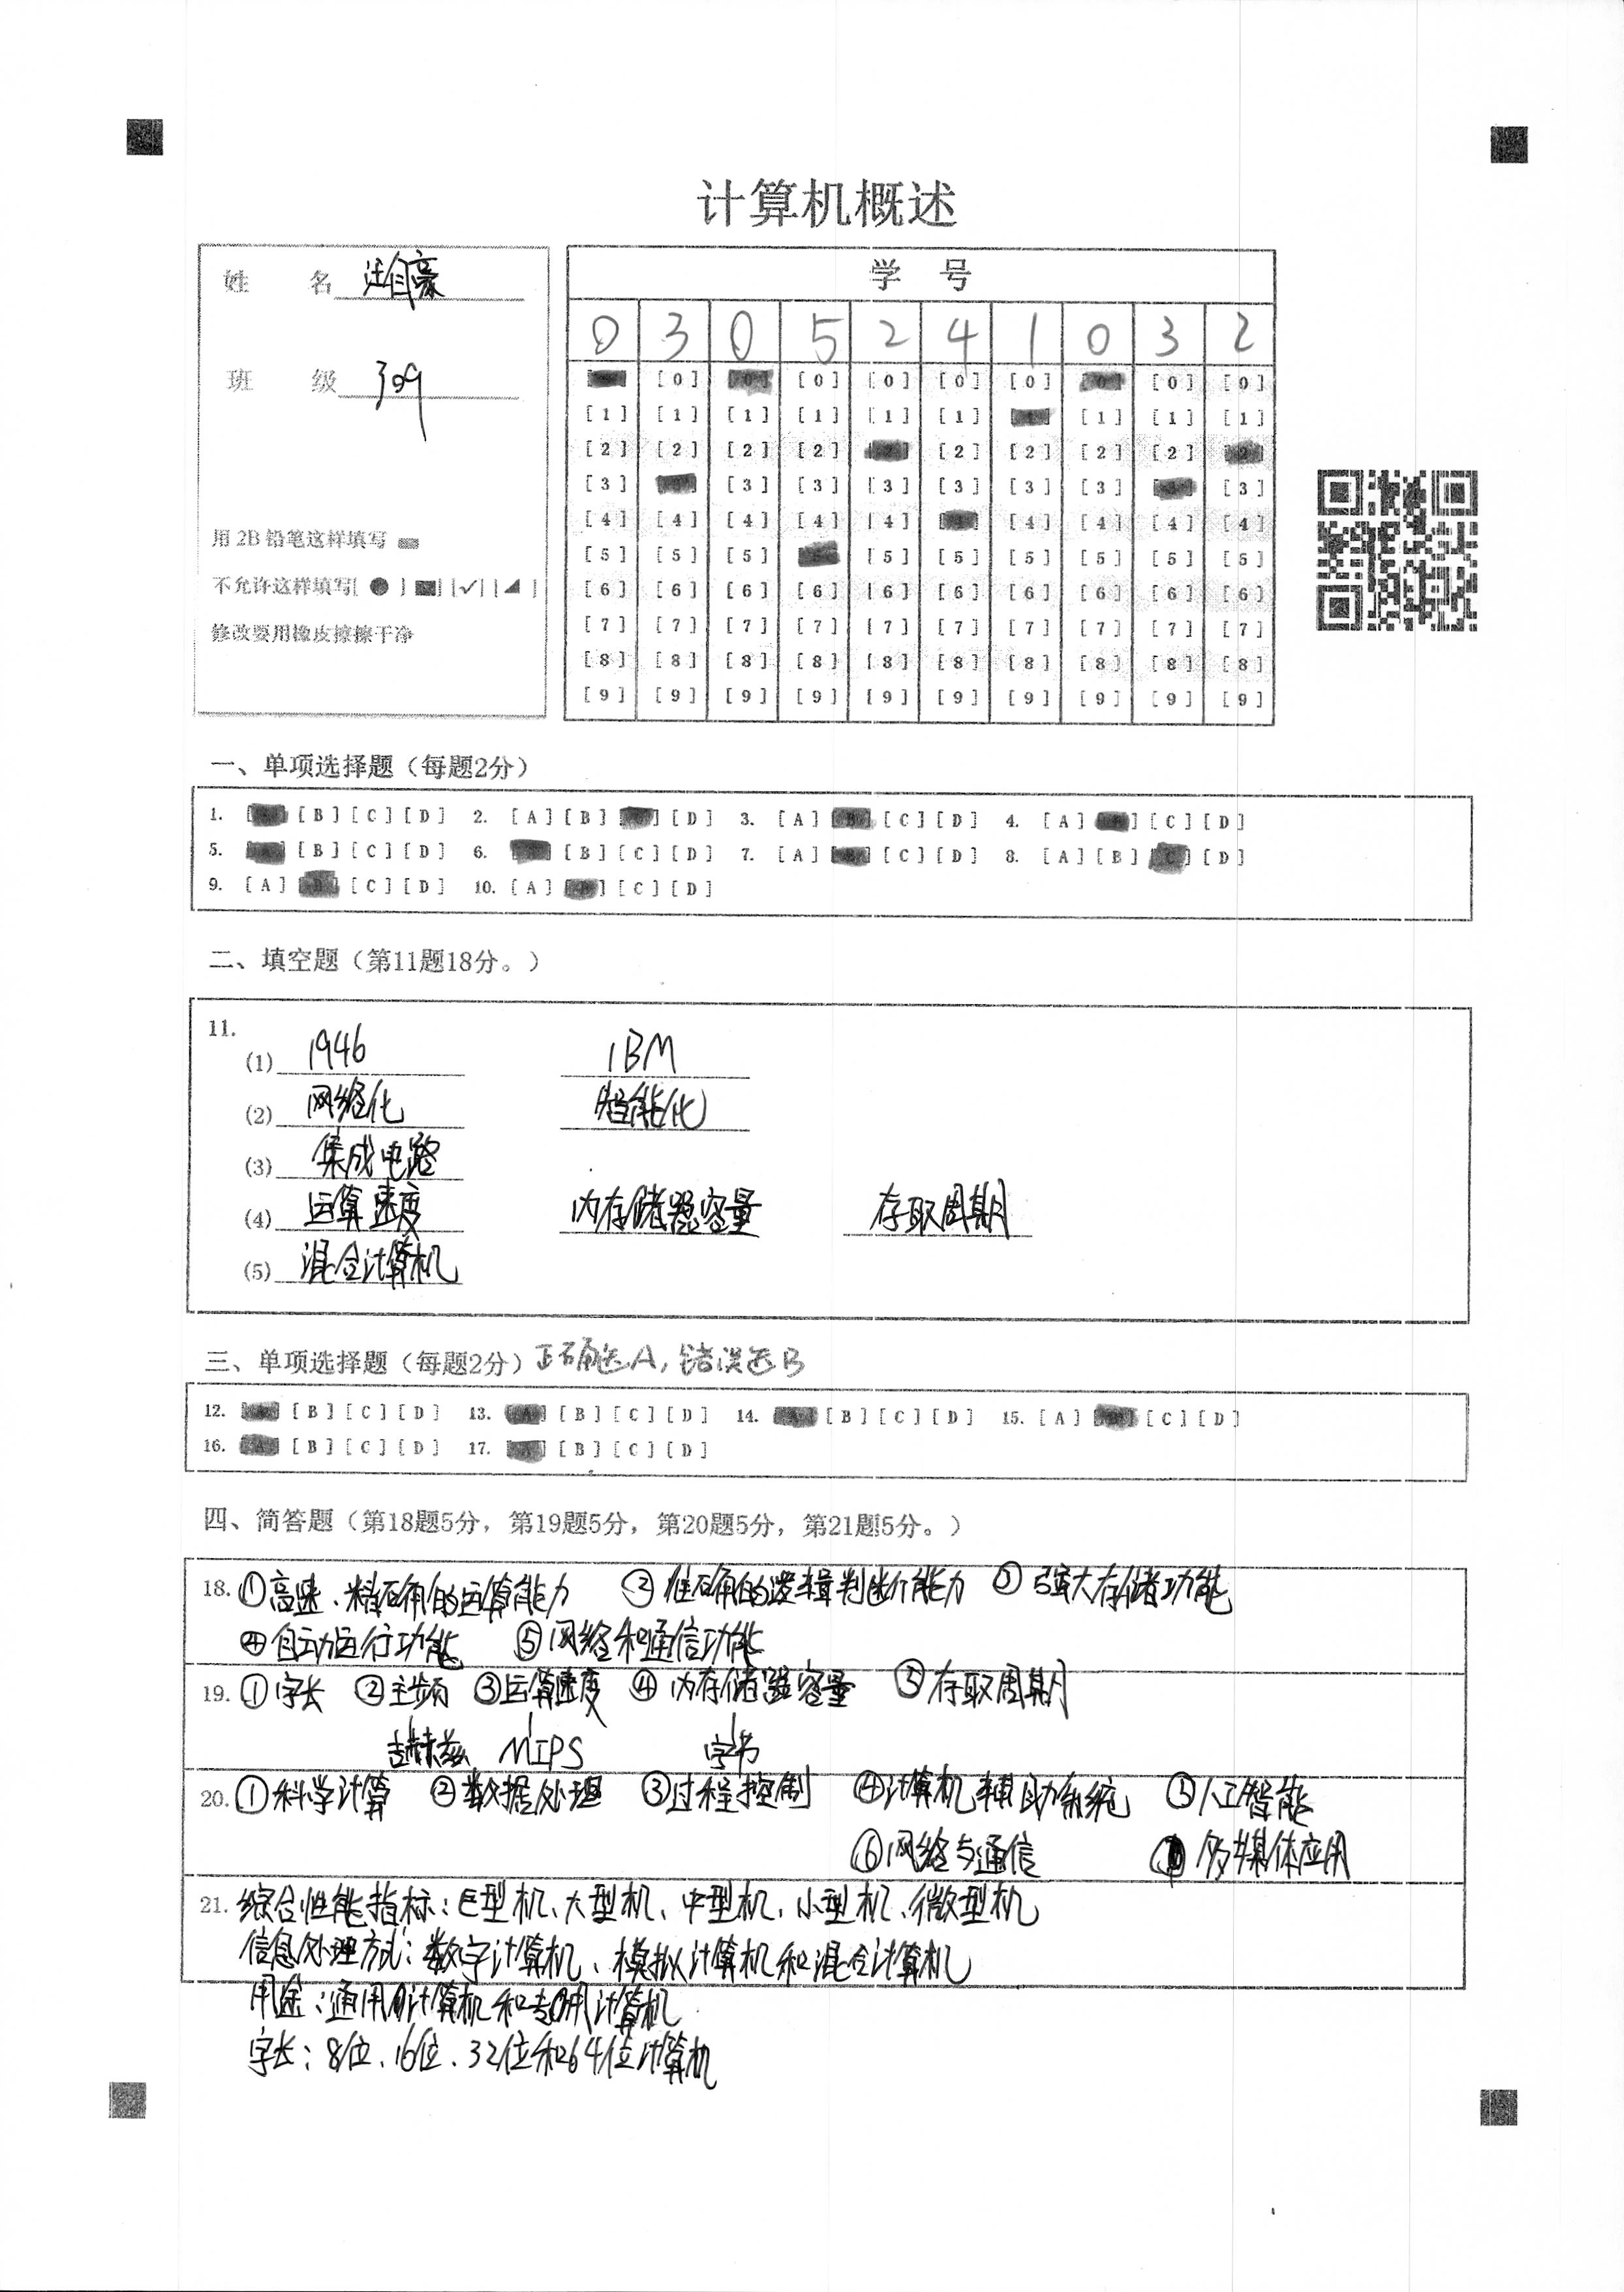 计算机概述
姓 名 汪自豪
班 级 309
用 2B 铅笔这样填写
不允许这样填写[ ● ] [■] [✓] [◢]
修改要用橡皮擦擦干净
学 号
0 3 0 5 2 4 1 0 3 2
[0] [0] [0] [0] [0] [0] [0]
[1] [1] [1] [1] [1] [1] [1] [1] [1]
[2] [2] [2] [2] [2] [2] [2] [2]
[3] [3] [3] [3] [3] [3] [3] [3]
[4] [4] [4] [4] [4] [4] [4] [4] [4]
[5] [5] [5] [5] [5] [5] [5] [5] [5]
[6] [6] [6] [6] [6] [6] [6] [6] [6] [6]
[7] [7] [7] [7] [7] [7] [7] [7] [7] [7]
[8] [8] [8] [8] [8] [8] [8] [8] [8] [8]
[9] [9] [9] [9] [9] [9] [9] [9] [9] [9]
一、单项选择题（每题2分）
1. [A] [B] [C] [D] 2. [A] [B] [C] [D] 3. [A] [B] [C] [D] 4. [A] [B] [C] [D]
5. [A] [B] [C] [D] 6. [A] [B] [C] [D] 7. [A] [B] [C] [D] 8. [A] [B] [C] [D]
9. [A] [B] [C] [D] 10. [A] [B] [C] [D]
二、填空题（第11题18分。）
11.
(1) 1946 IBM
(2) 网络化 智能化
(3) 集成电路
(4) 运算速度 内存储器容量 存取周期
(5) 混合计算机
三、单项选择题（每题2分）正确选A，错误选B
12. [A] [B] [C] [D] 13. [A] [B] [C] [D] 14. [A] [B] [C] [D] 15. [A] [B] [C] [D]
16. [A] [B] [C] [D] 17. [A] [B] [C] [D]
四、简答题（第18题5分，第19题5分，第20题5分，第21题5分。）
18. ①高速、精确的运算能力 ②准确的逻辑判断能力 ③强大存储功能
④自动运行功能 ⑤网络和通信功能
19. ①字长 ②主频 ③运算速度 ④内存储器容量 ⑤存取周期
吉赫兹 MIPS 字节
20. ①科学计算 ②数据处理 ③过程控制 ④计算机辅助系统 ⑤人工智能
⑥网络与通信 多媒体应用
21. 综合性能指标：巨型机、大型机、中型机、小型机、微型机
信息处理方式：数字计算机、模拟计算机和混合计算机
用途：通用计算机和专用计算机
字长：8位、16位、32位和64位计算机